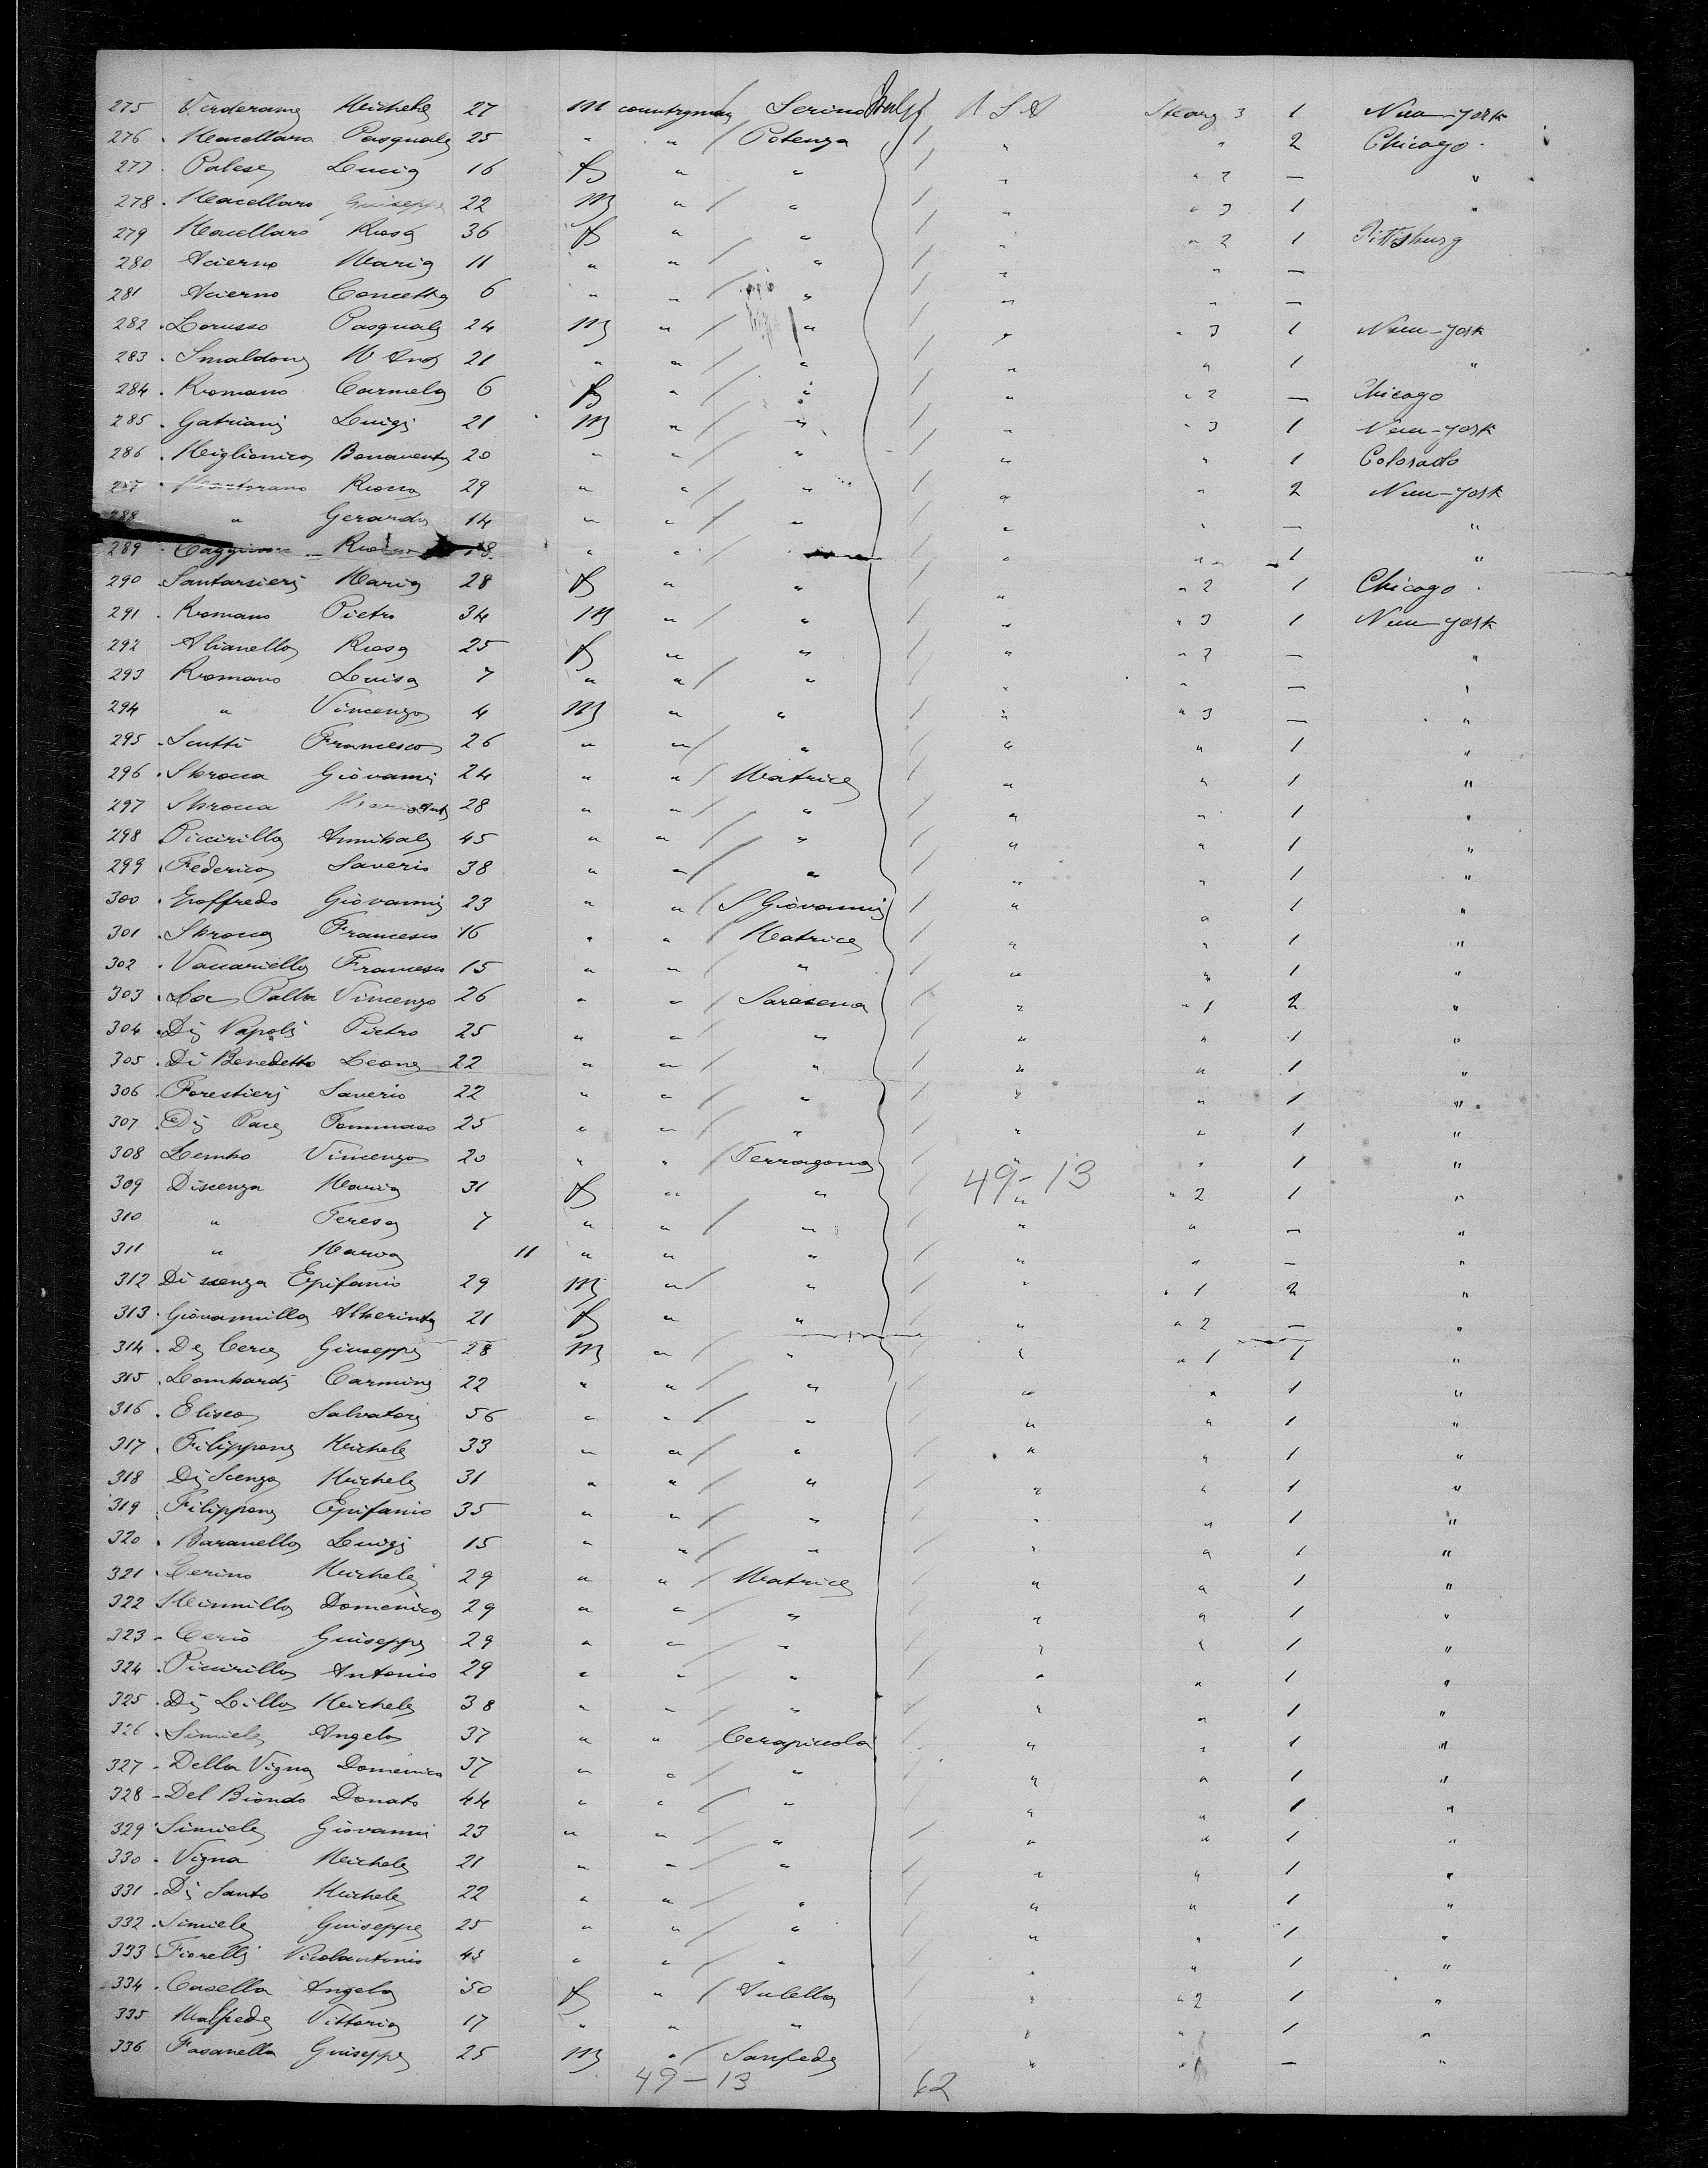 275 Verderame Michele 27 m countryman Serino Italy U S A Steerg 3 1 New-york
276 Macellaro Pasquale 25 " " Potenza " " 2 Chicago
277 Palese Lucia 16 f " " " " 2 — "
278 Macellaro Giuseppe 22 m " " " " 3 1 "
279 Macellaro Rosa 36 f " " " " 2 1 Pittsburg
280 Acierno Maria 11 " " " " " —
281 Acierno Concetta 6 " " " " " —
282 Lorusso Pasquale 24 m " " " " 3 1 New-york
283 Smaldone M Ant 21 " " " " " 1 "
284 Romano Carmela 6 f " " " " 2 — Chicago
285 Gatriani Luigi 21 m " " " " 3 1 New-york
286 Miglionico Bonaventa 20 " " " " " 1 Colorado
287 Martorano Rocco 29 " " " " " 2 New-york
288 " Gerardo 14 " " " " " — "
289 Caggiano Rocco 18 " " " " " 1 "
290 Santarsieri Maria 28 f " " " " 2 1 Chicago
291 Romano Pietro 34 m " " " " 3 1 New-york
292 Alianello Rosa 25 f " " " " 2 — "
293 Romano Luisa 7 " " " " " — "
294 " Vincenzo 4 m " " " " 3 — "
295 Scutti Francesco 26 " " " " " 1 "
296 Sbrocca Giovanni 24 " " Matrice " " 1 "
297 Sbrocca Mario Ant 28 " " " " " 1 "
298 Piccirillo Annibale 45 " " " " " 1 "
299 Federico Saverio 38 " " " " " 1 "
300 Goffredo Giovanni 23 " " S Giovanni " " 1 "
301 Sbrocca Francesco 16 " " Matrice " " 1 "
302 Vaccariello Francesco 15 " " " " " 1 "
303 La Palla Vincenzo 26 " " Saracena " " 1 2 "
304 Di Napoli Pietro 25 " " " " " 1 "
305 Di Benedetto Leone 22 " " " " " 1 "
306 Forestieri Saverio 22 " " " " " 1 "
307 Di Pace Tommaso 25 " " " " " 1 "
308 Lembo Vincenzo 20 " " Ferragona " " 1 "
49-13
309 Discenza Maria 31 f " " " " 2 1 "
310 " Teresa 7 " " " " " — "
311 " Maria 11 " " " " " — "
312 Di scenza Epifanio 29 m " " " " 1 2 "
313 Giovannilla Alberinta 21 f " " " " 2 — "
314 De Cerce Giuseppe 28 m " " " " 1 1 "
315 Lombardi Carmine 22 " " " " " 1 "
316 Eliseo Salvatore 56 " " " " " 1 "
317 Filippone Michele 33 " " " " " 1 "
318 Di Scenza Michele 31 " " " " " 1 "
319 Filippone Epifanio 35 " " " " " 1 "
320 Baranello Luigi 15 " " " " " 1 "
321 Cerino Michele 29 " " Matrice " " 1 "
322 Minnillo Domenico 29 " " " " " 1 "
323 Cerio Giuseppe 29 " " " " " 1 "
324 Piccirillo Antonio 29 " " " " " 1 "
325 Di Lillo Michele 38 " " " " " 1 "
326 Simiele Angelo 37 " " Cerapiccola " " 1 "
327 Della Vigna Domenico 37 " " " " " 1 "
328 Del Biondo Donato 44 " " " " " 1 "
329 Simiele Giovanni 23 " " " " " 1 "
330 Vigna Michele 21 " " " " " 1 "
331 Di Santo Michele 22 " " " " " 1 "
332 Simiele Giuseppe 25 " " " " " 1 "
333 Fiorelli Nicolantonio 45 " " " " " 1 "
334 Casella Angela 50 f " Auletta " " 2 1 "
335 Malpede Vittoria 17 " " " " " 1 "
336 Fasanella Giuseppe 25 m " Sanfede " " 1 — "
49-13 62